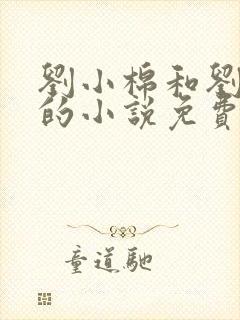 劉小棉和劉
的小說免費
童道馳